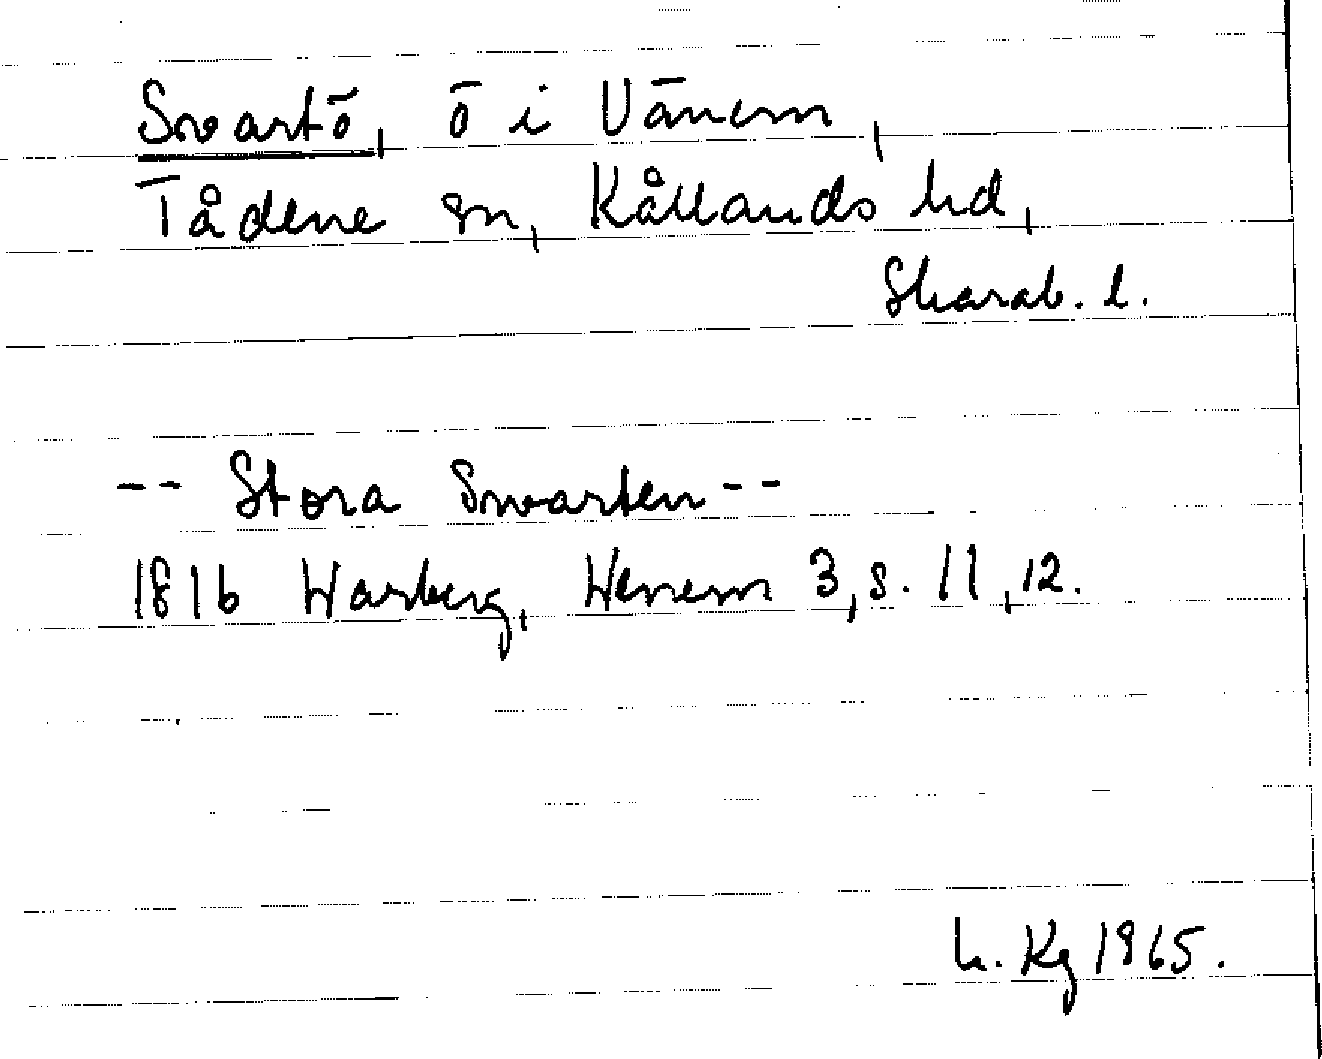 Svartö, ö i Vänern,
Tådene sn, Kållands hd,
Skarab. l.
-- Stora Swarten --
1816 Warberg, Wenern 3, s. 11, 12.
h. Kg 1965.